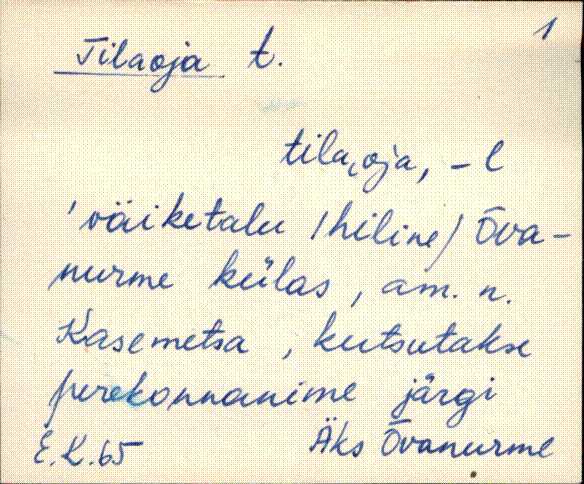 1
Tilaoja t.
tila,oja, -l
'väiketalu /hiline/ Õva-
nurme külas, am. n.
Kasemetsa, kutsutakse
perekonnanime järgi
E.K.65 Äks Õvanurme